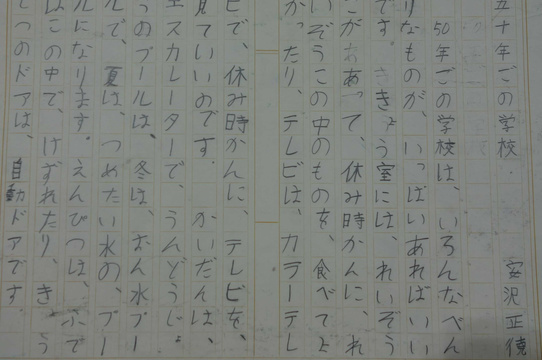 五十年ごの学校. 安沢正
50年ごの学校は、いろんなべん
りなものが、いっぱいあればいい
です。ききょう室には、れいぞう
こがああって、休み時かんに、れ
いぞうこの中のものを、食べてよ
かったり、テレビは、カラーテレ
ビで、休み時かんに、テレビを、
見ていいのです。かいだんは、
エスカレーターで、うんどうじょ
つのプールは、冬は、おん水プー
ルで、夏は、つめたい水の、プー
ルになります。えんぴつは、ふで
はこの中で、けずれたり、きょう
つのドアは、自動ドアです